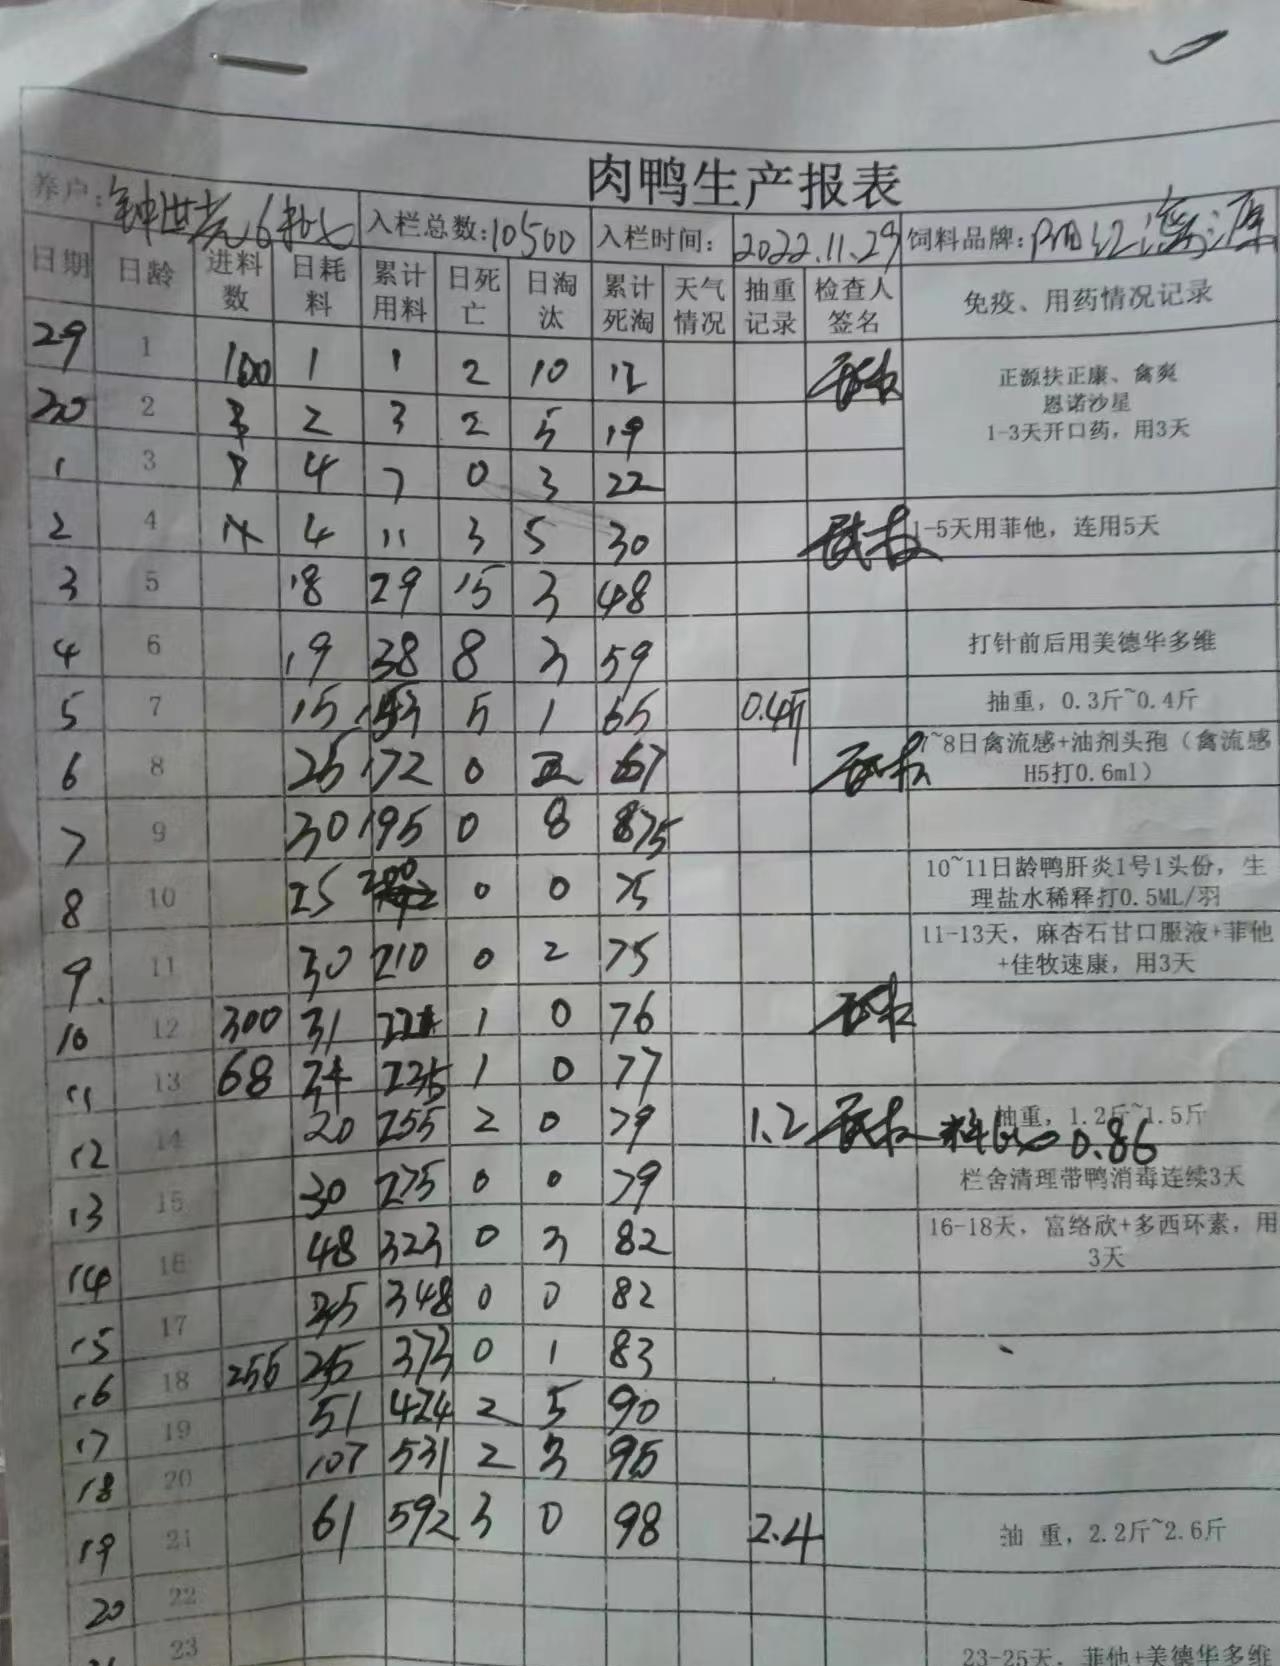 肉鸭生产报表
养户: 钟世 6 入栏总数:10500 入栏时间: 2022.11.29 饲料品牌: 阳江
日期 日龄 进料数 日耗料 累计用料 日死亡 日淘汰 累计死淘 天气情况 抽重记录 检查人签名 免疫、用药情况记录
29 1 100 1 1 2 10 12 正源扶正康、禽爽
恩诺沙星
30 2 2 3 2 5 19 1-3天开口药，用3天
1 3 4 7 0 3 22
2 4 4 11 3 5 30 1-5天用菲他，连用5天
3 5 18 29 15 3 48
4 6 19 38 8 3 59 打针前后用美德华多维
5 7 15 153 5 1 65 0.4斤 抽重，0.3斤~0.4斤
6 8 25 172 0 2 67 7~8日禽流感+油剂头孢（禽流感
H5打0.6ml）
7 9 30 195 0 8 75
8 10 25 200 0 0 75 10~11日龄鸭肝炎1号1头份，生
理盐水稀释打0.5ML/羽
9. 11 30 210 0 2 75 11-13天，麻杏石甘口服液+菲他
+佳牧速康，用3天
10 12 300 31 221 1 0 76
11 13 68 24 235 1 0 77
12 14 20 255 2 0 79 1.2 抽重，1.2斤~1.5斤
料 0.86
13 15 30 275 0 0 79 栏舍清理带鸭消毒连续3天
14 16 48 323 0 3 82 16-18天，富络欣+多西环素，用
3天
15 17 25 348 0 0 82
16 18 255 25 373 0 1 83
17 19 51 424 2 5 90
18 20 107 531 2 3 95
19 21 61 592 3 0 98 2.4 抽 重，2.2斤~2.6斤
20 22
23 23-25天，菲他+美德华多维